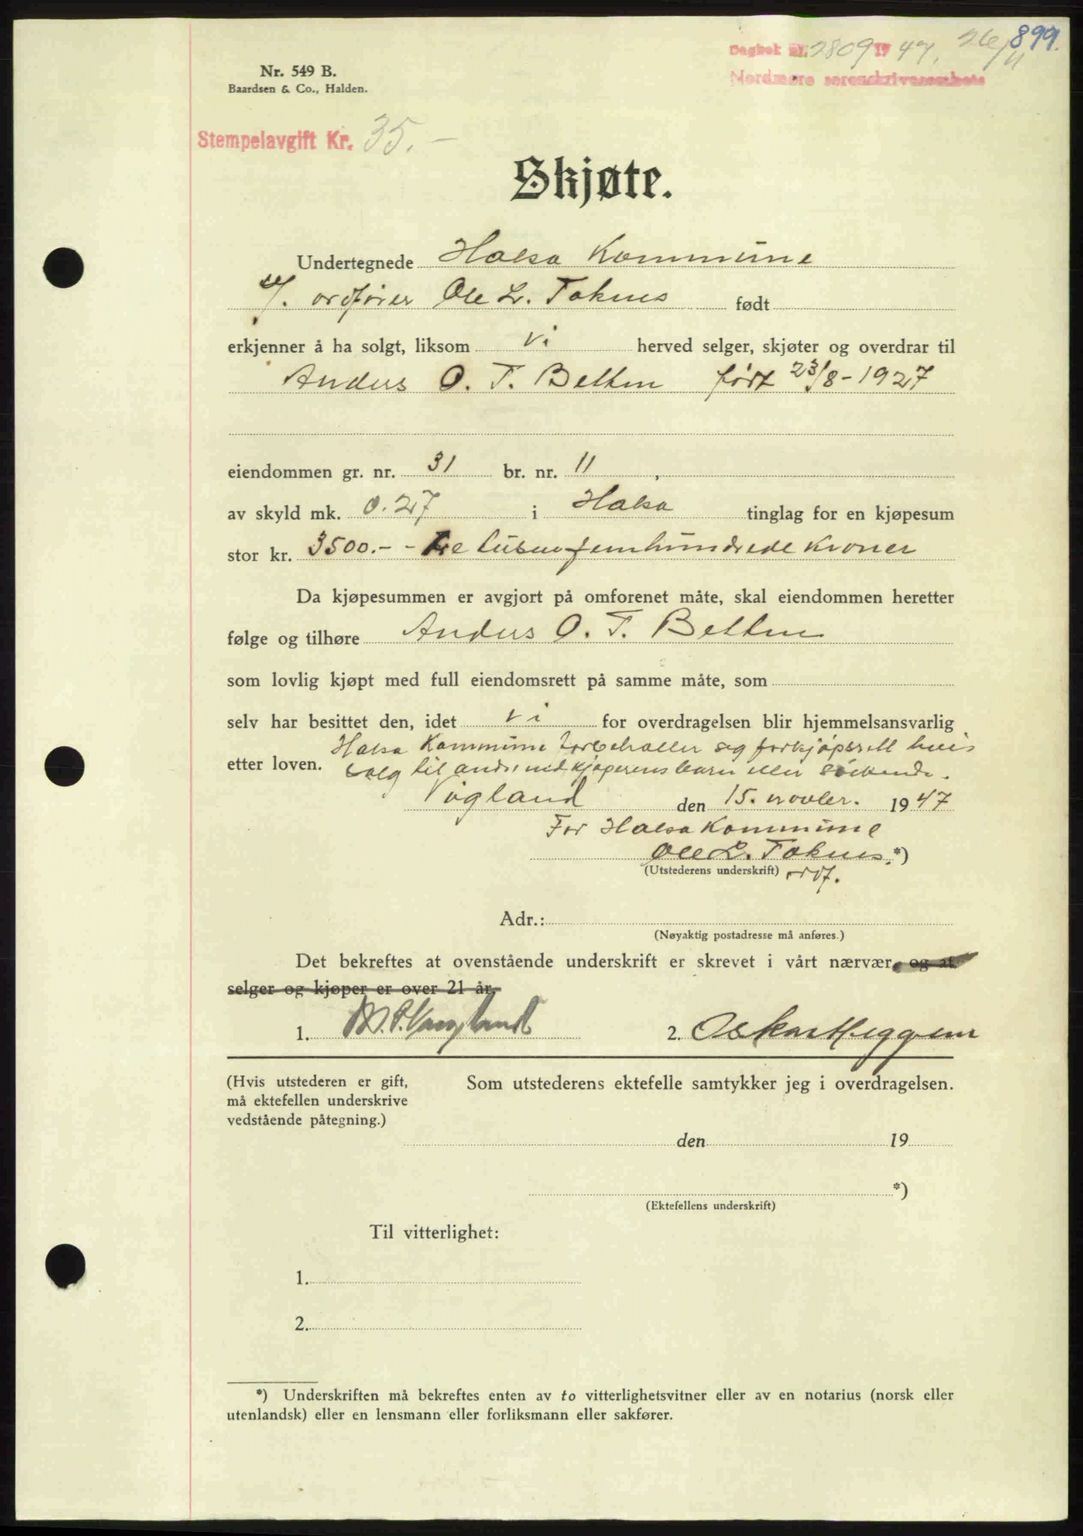 899.
Dagbok nr. 2809 19 47. 26/11
Nordmøre sorenskriverembete
Nr. 549 B.
Baardsen & Co., Halden.
Stempelavgift Kr. 35.-
Skjøte.
Undertegnede Halsa Kommune
v/. ordfører Ole L. Toknes født
erkjenner å ha solgt, liksom vi herved selger, skjøter og overdrar til
Anders O. T. Betten født 23/8-1927
eiendommen gr. nr. 31 br. nr. 11 ,
av skyld mk. 0.27 i Halsa tinglag for en kjøpesum
stor kr. 3500.- - Tre tusenfemhundrede kroner
Da kjøpesummen er avgjort på omforenet måte, skal eiendommen heretter
følge og tilhøre Anders O. T. Betten
som lovlig kjøpt med full eiendomsrett på samme måte, som
selv har besittet den, idet vi for overdragelsen blir hjemmelsansvarlig
Halsa Kommune forbeholler seg forkjøpsrett hvis
etter loven. salg til andre enn kjøperens barn eller søskende.
Vågland den 15. novbr. 1947
For Halsa Kommune
Ole L. Toknes. *)
(Utstederens underskrift) ordf.
Adr.:
(Nøyaktig postadresse må anføres.)
Det bekreftes at ovenstående underskrift er skrevet i vårt nærvær, og at
selger og kjøper er over 21 år.
1. M. P. Vaagland 2. Oskar Heggem
(Hvis utstederen er gift, Som utstederens ektefelle samtykker jeg i overdragelsen.
må ektefellen underskrive
vedstående påtegning.)
den 19
*)
(Ektefellens underskrift)
Til vitterlighet:
1.
2.
*) Underskriften må bekreftes enten av to vitterlighetsvitner eller av en notarius (norsk eller
utenlandsk) eller en lensmann eller forliksmann eller sakfører.